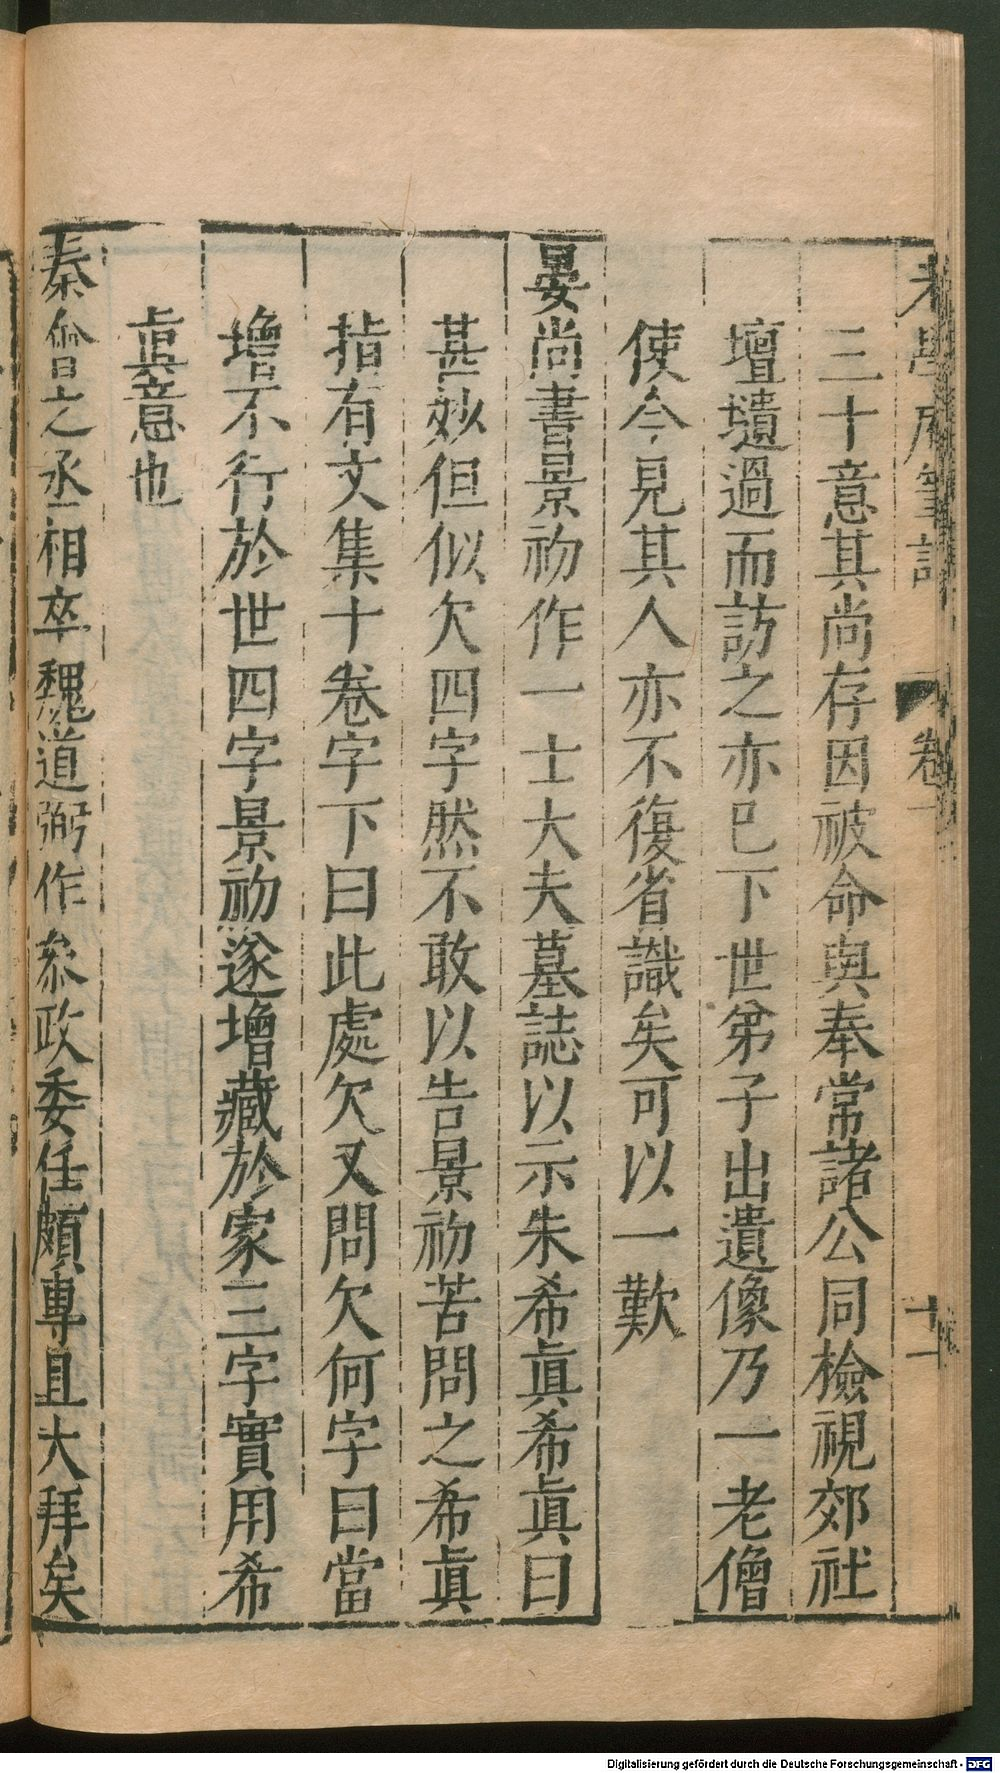 老學庵筆記 卷一 十一
三十意其尚存因被命與奉常諸公同檢視郊社
壇壝過而訪之亦已下世弟子出遺像乃一老僧
使今見其人亦不復省識矣可以一歎
晏尚書景初作一士大夫墓誌以示朱希眞希眞曰
甚妙但似欠四字然不敢以告景初苦問之希眞
指有文集十卷字下曰此處欠又問欠何字曰當
增不行於世四字景初遂增藏於家三字實用希
眞意也
秦會之丞相卒魏道弼作參政委任頗專且大拜矣
Digitalisierung gefördert durch die Deutsche Forschungsgemeinschaft - DFG